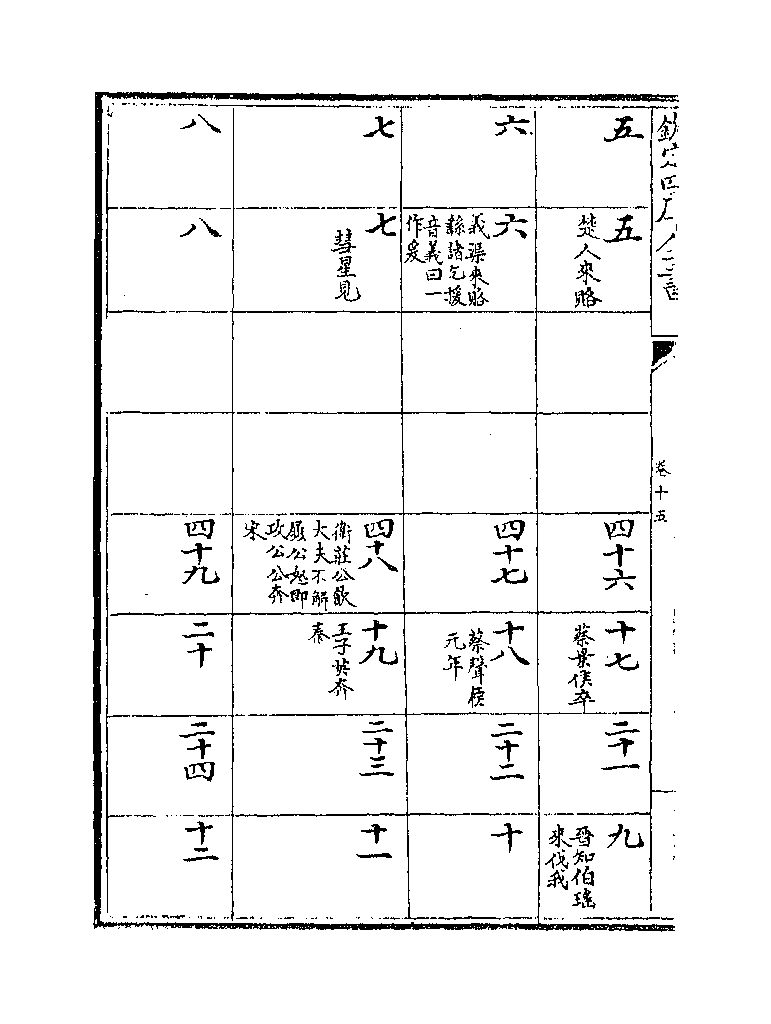 欽定四庫全書
卷十五
五
五
楚人來賂
四十六
十七
蔡景侯卒
二十一
九
晉知伯瑤
來伐我
六
六
義渠來賂
緜諸乞援
音義曰一
作爰
四十七
十八
蔡聲侯
元年
二十二
十
七
七
彗星見
四十八
衛莊公飲
大夫不解
履公怒即
攻公公奔
宋
十九
王子英奔
秦
二十三
十一
八
八
四十九
二十
二十四
十二